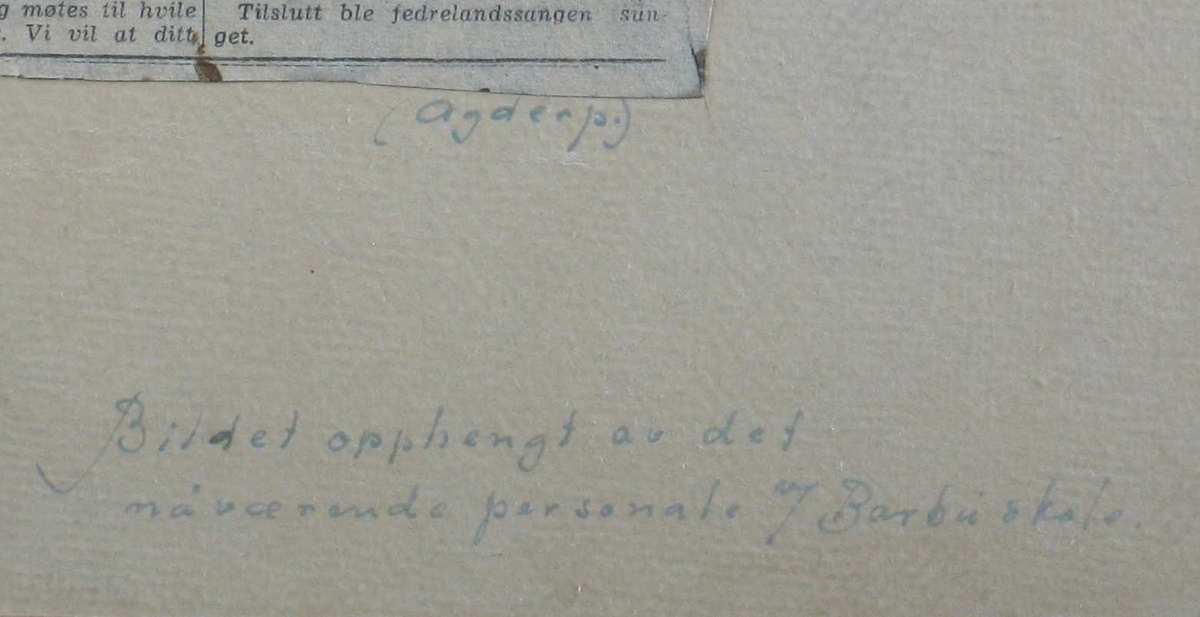 g møtes til hvile
. Vi vil at ditt
Tilslutt ble fedrelandssangen sun-
get.
(Agderp.)
Bildet opphengt av det
nåværende personale v/ Barbu skole.